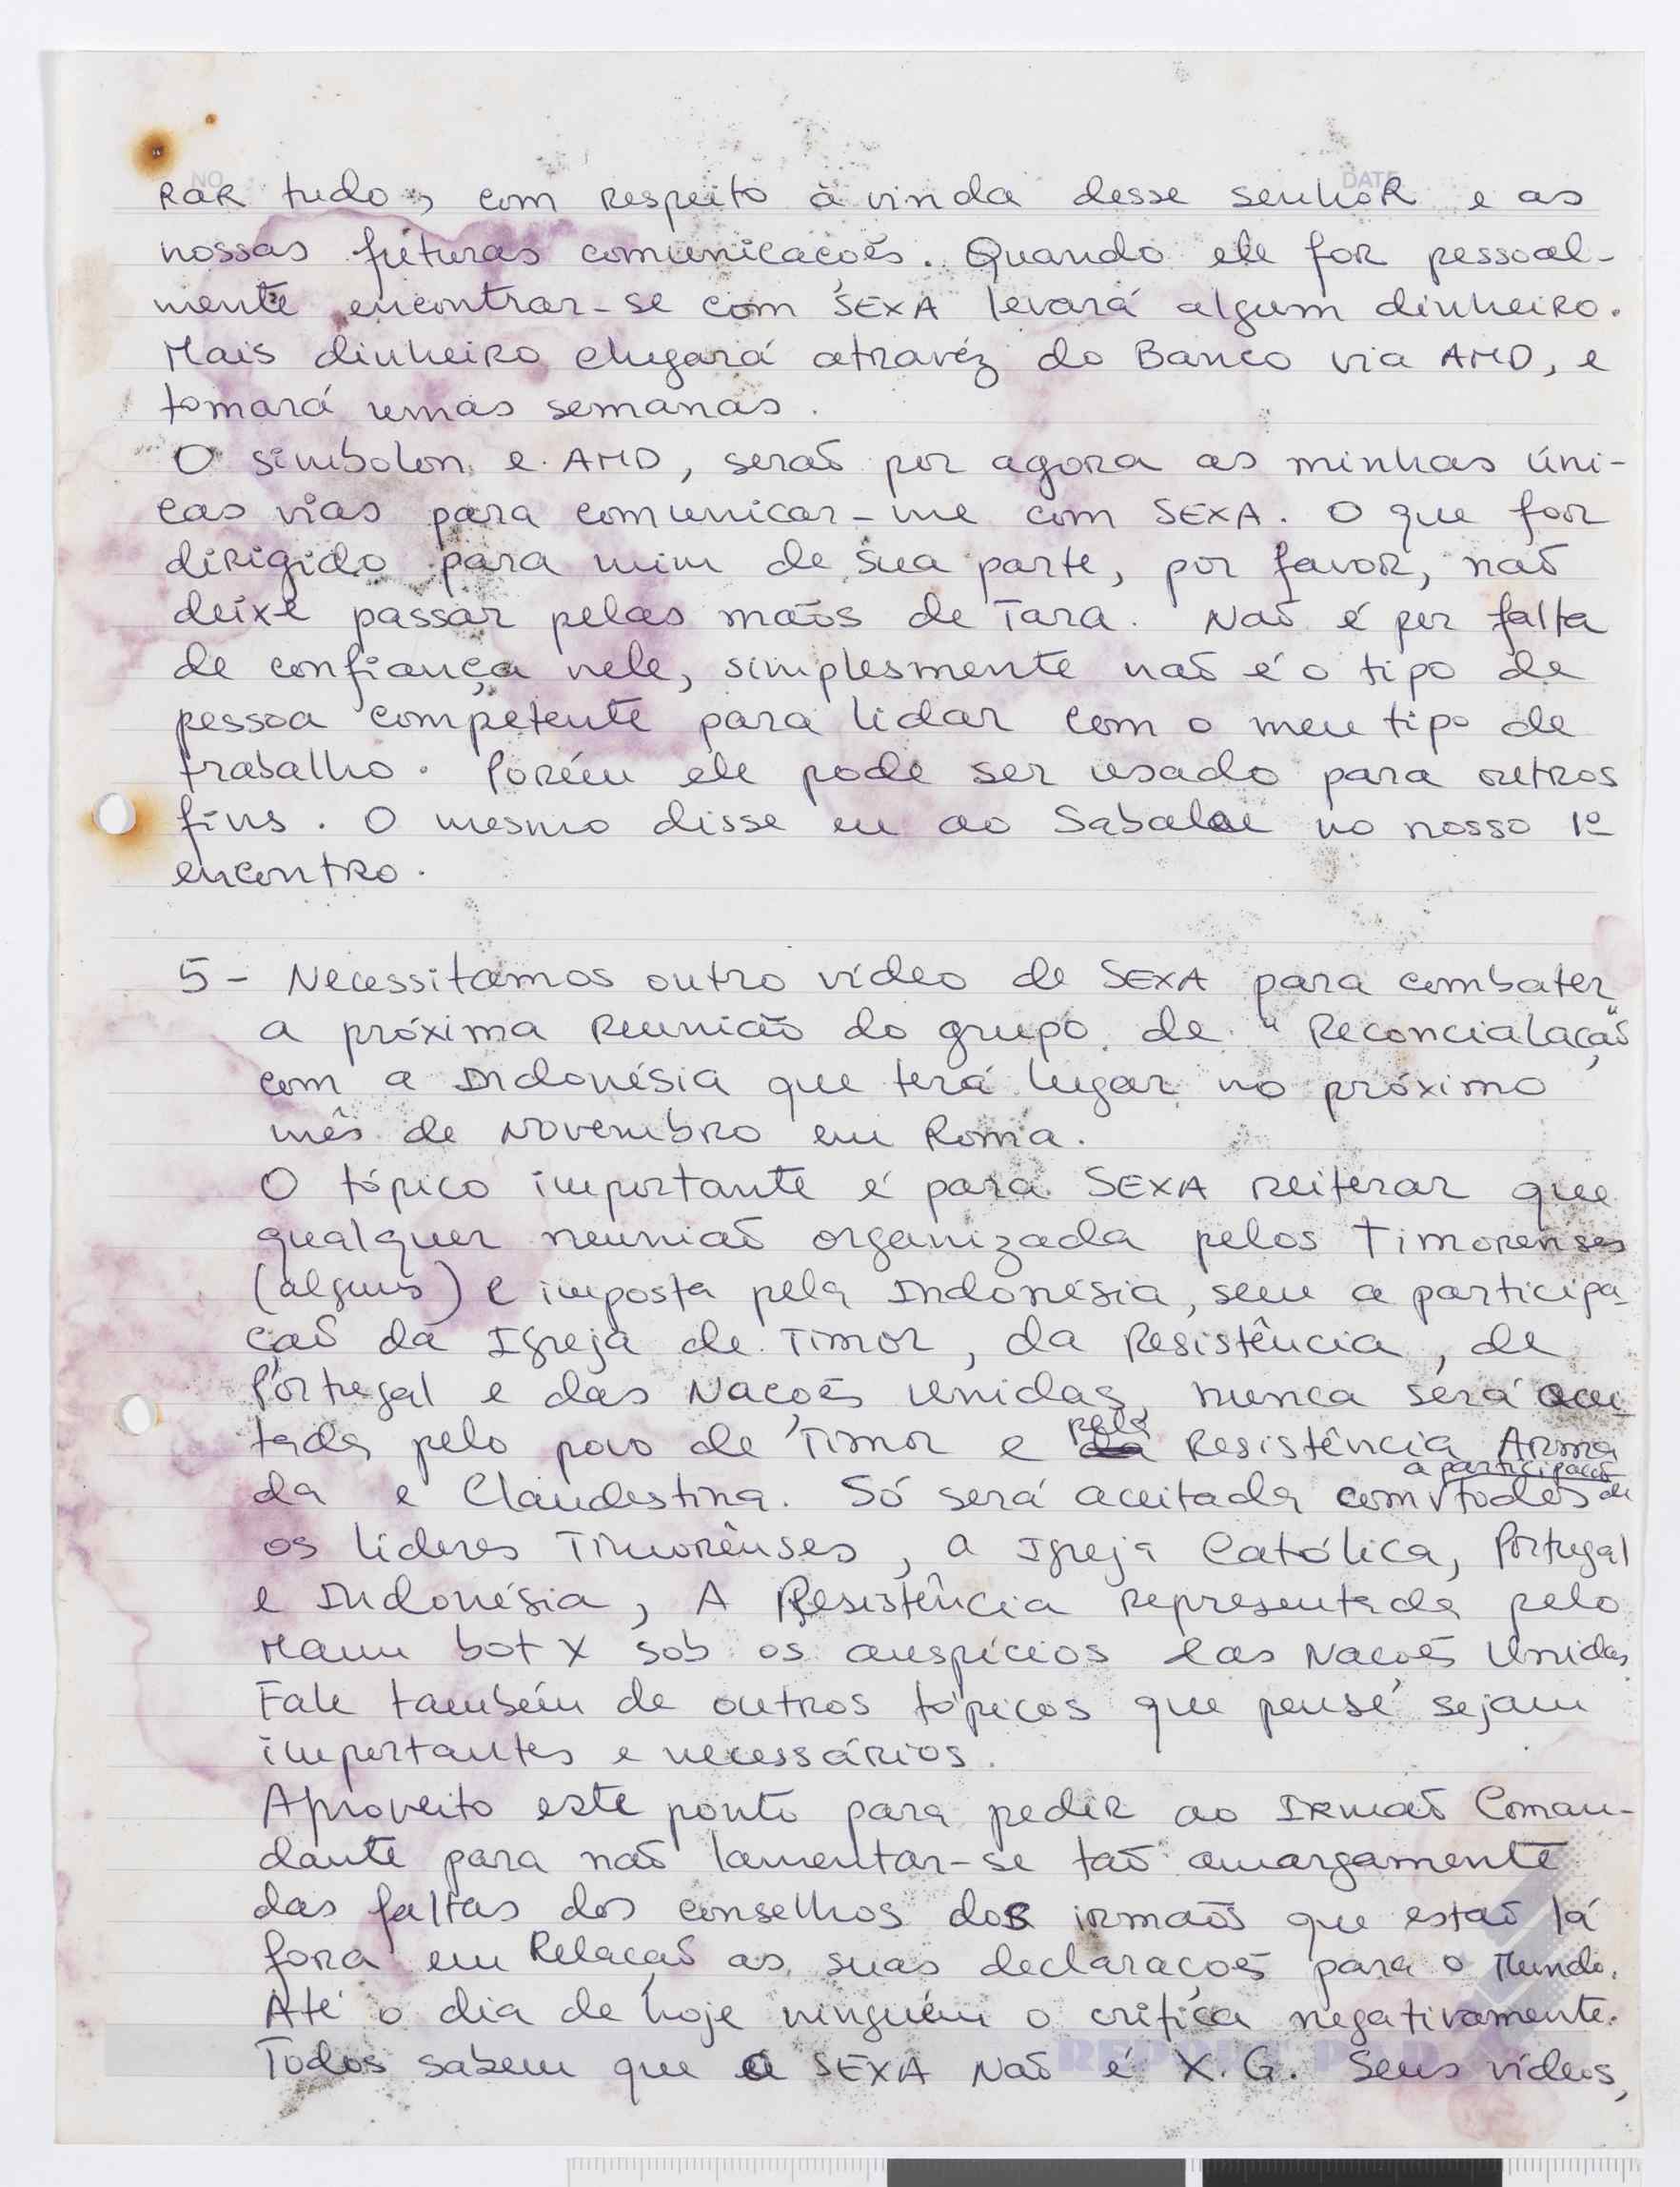 NO. DATE
RAR tudo, com respeito à vinda desse senhoR e as
nossas futuras comunicacoẽs. Quando ele for pessoal-
mente encontrar-se com SEXA levará algum dinheiro.
Mais dinheiro chegará atravéz do Banco via AMD, e
tomará umas semanas.
O simbolon e AMD, seraõ por agora as minhas úni-
cas vias para comunicar-me com SEXA. O que for
dirigido para mim de sua parte, por favor, naõ
deixe passar pelas maõs de Tara. Naõ é por falta
de confiança nele, simplesmente naõ é o tipo de
pessoa competente para lidar com o meu tipo de
trabalho. Porém ele pode ser usado para outros
fins. O mesmo disse eu ao Sabalae no nosso 1º
encontro.
5- Necessitamos outro vídeo de SEXA para combater
a próxima Reunião do grupo de "Reconcialaçaõ"
com a Indonésia que terá lugar no próximo
mês de Novembro em Roma.
O tópico importante é para SEXA reiterar que
qualquer reuniaõ organizada pelos Timorenses
(alguns) e imposta pela Indonésia, sem a participa-
çaõ da Igreja de Timor, da Resistência, de
Portugal e das Naçoẽs Unidas, nunca será acei-
tada pelo povo de Timor e da pela Resistência Arma
da e Clandestina. Só será aceitada com a participaçaõ de todos
os líderes Timorênses, a Igreja Católica, Portugal
e Indonésia, A Resistência representada pelo
Maun bot X sob os auspícios das Nacoẽs Unidas.
Fale também de outros tópicos que pense sejam
importantes e necessários.
Aproveito este ponto para pedir ao Irmaõ Coman-
dante para naõ lamentar-se taõ amargamente
das faltas dos conselhos dos irmaõs que estaõ lá
fora em Relaçaõ as suas declaraçoẽs para o Mundo.
Até o dia de hoje ninguém o critica negativamente.
Todos sabem que a SEXA Naõ é X.G. Seus vídeos,
REPORT PAD